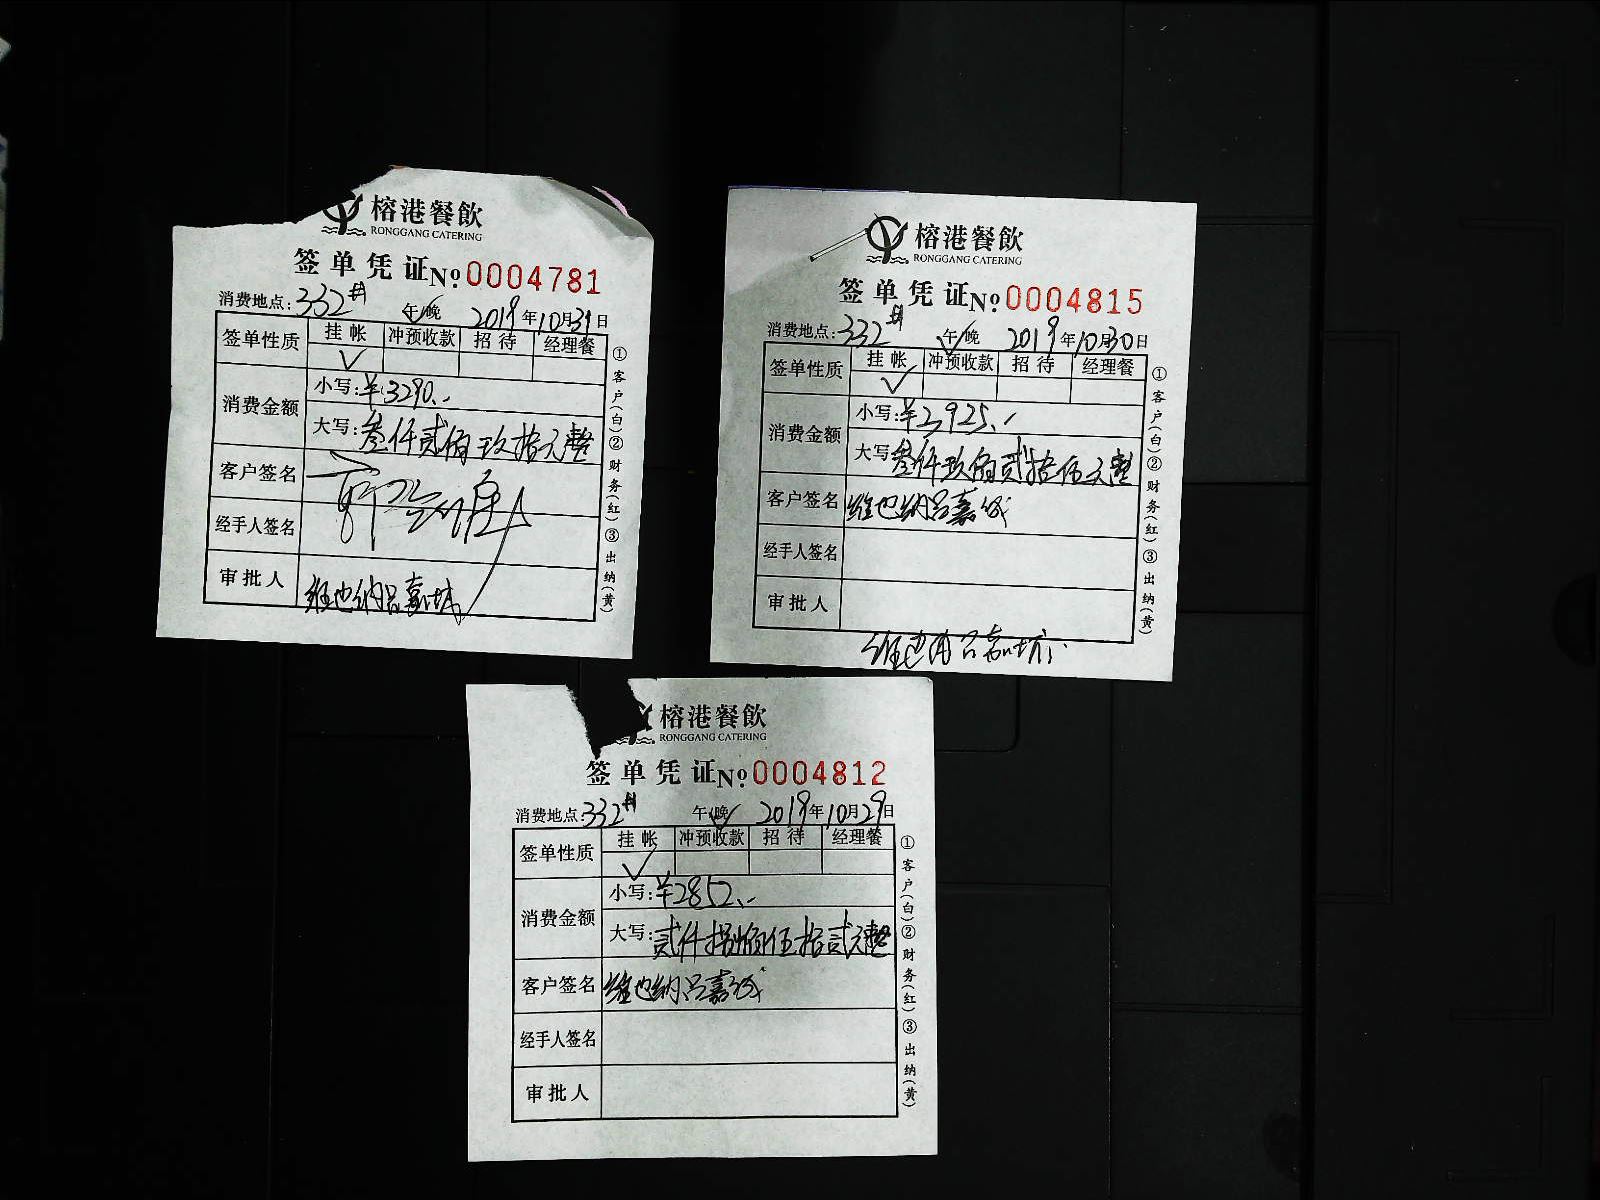 榕港餐飲
RONGGANG CATERING
签单凭证 No 0004781
消费地点:332# 午/晚 2019年10月31日
签单性质 挂帐 冲预收款 招待 经理餐
✓
消费金额
小写:¥3290.-
大写:叁仟贰佰玖拾元整
客户签名
经手人签名
审批人 维也纳吕嘉城
①客户(白)②财务(红)③出纳(黄)
榕港餐飲
RONGGANG CATERING
签单凭证 No 0004815
消费地点:332# 午/晚 2019年10月30日
签单性质 挂帐 冲预收款 招待 经理餐
✓
消费金额
小写:¥3925.-
大写:叁仟玖佰贰拾伍元整
客户签名 维也纳吕嘉城
经手人签名
审批人
维也纳吕嘉城
①客户(白)②财务(红)③出纳(黄)
榕港餐飲
RONGGANG CATERING
签单凭证 No 0004812
消费地点:332# 午/晚 2019年10月29日
签单性质 挂帐 冲预收款 招待 经理餐
✓
消费金额
小写:¥2852.-
大写:贰仟捌佰伍拾贰元整
客户签名 维也纳吕嘉城
经手人签名
审批人
①客户(白)②财务(红)③出纳(黄)